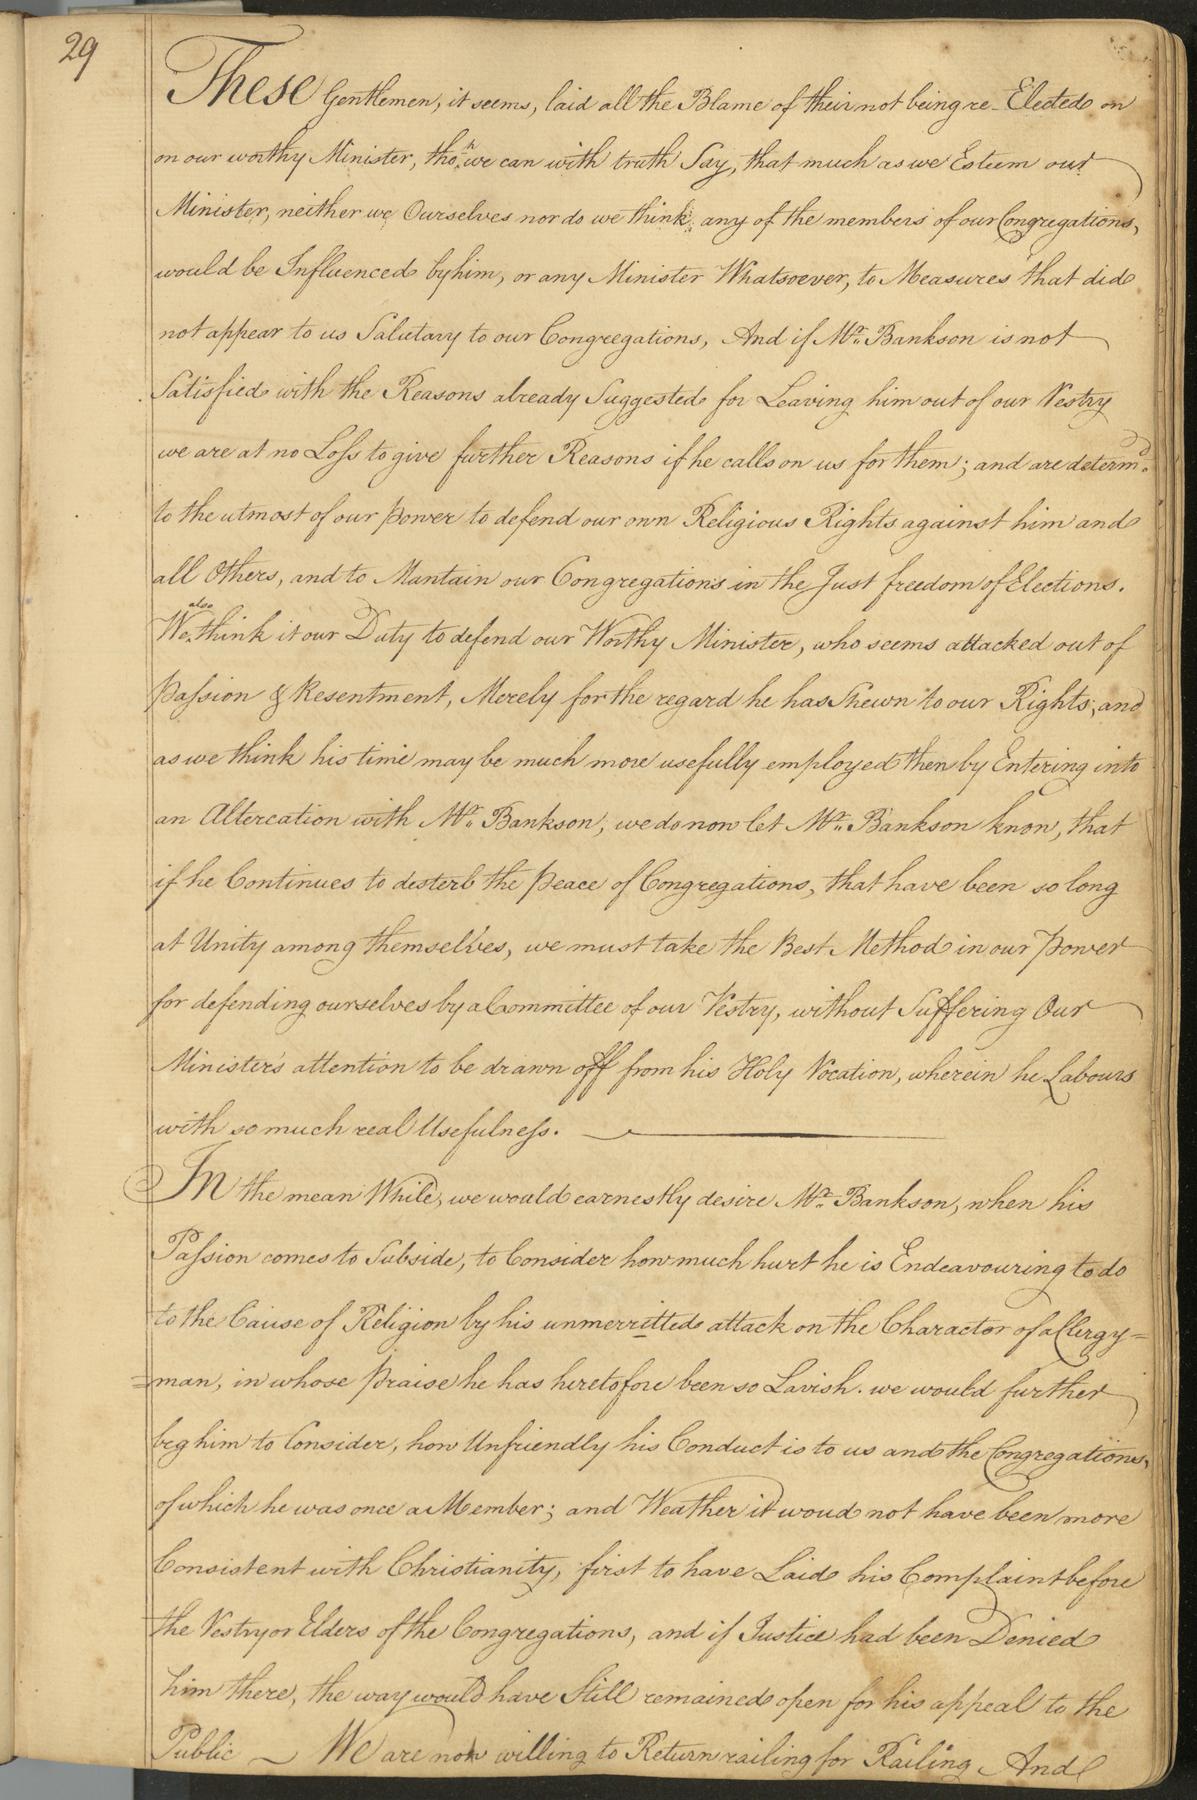 29
These Gentlemen, it seems, laid all the Blame of their not being re-Elected on
on our worthy Minister, tho' we can with truth Say, that much as we Esteem our
Minister, neither we Ourselves nor do we think any of the members of our Congregations,
would be Influenced by him, or any Minister Whatsoever, to Measures that did
not appear to us Salutary to our Congregations, And if Mr. Bankson is not
Satisfied with the Reasons already Suggested for Leaving him out of our Vestry
we are at no Loss to give further Reasons if he calls on us for them; and are determd.
to the utmost of our power to defend our own Religious Rights against him and
all Others, and to Mantain our Congregations in the Just freedom of Elections.
We also think it our Duty to defend our Worthy Minister, who seems attacked out of
Passion & Resentment, Merely for the regard he has Shewn to our Rights, and
as we think his time may be much more usefully employed then by Entering into
an Altercation with Mr. Bankson; we do now let Mr. Bankson know, that
if he Continues to desterb the peace of Congregations, that have been so long
at Unity among themselves, we must take the Best Method in our Power
for defending ourselves by a Committee of our Vestry, without Suffering Our
Minister's attention to be drawn off from his Holy Vocation, wherein he Labours
with so much real Usefulness.
In the mean While, we would earnestly desire Mr. Bankson, when his
Passion comes to Subside, to Consider how much hurt he is Endeavouring to do
to the Cause of Religion by his unmerritted attack on the Charactor of a Clergy=
=man, in whose praise he has heretofore been so Lavish. we would further
beg him to Consider, how Unfriendly his Conduct is to us and the Congregations,
of which he was once a Member; and Weather it woud not have been more
Consistent with Christianity, first to have Laid his Complaint before
the Vestry or Elders of the Congregations, and if Justice had been Denied
him there, the way would have Still remained open for his appeal to the
Public — We are not willing to Return railing for Railing, And